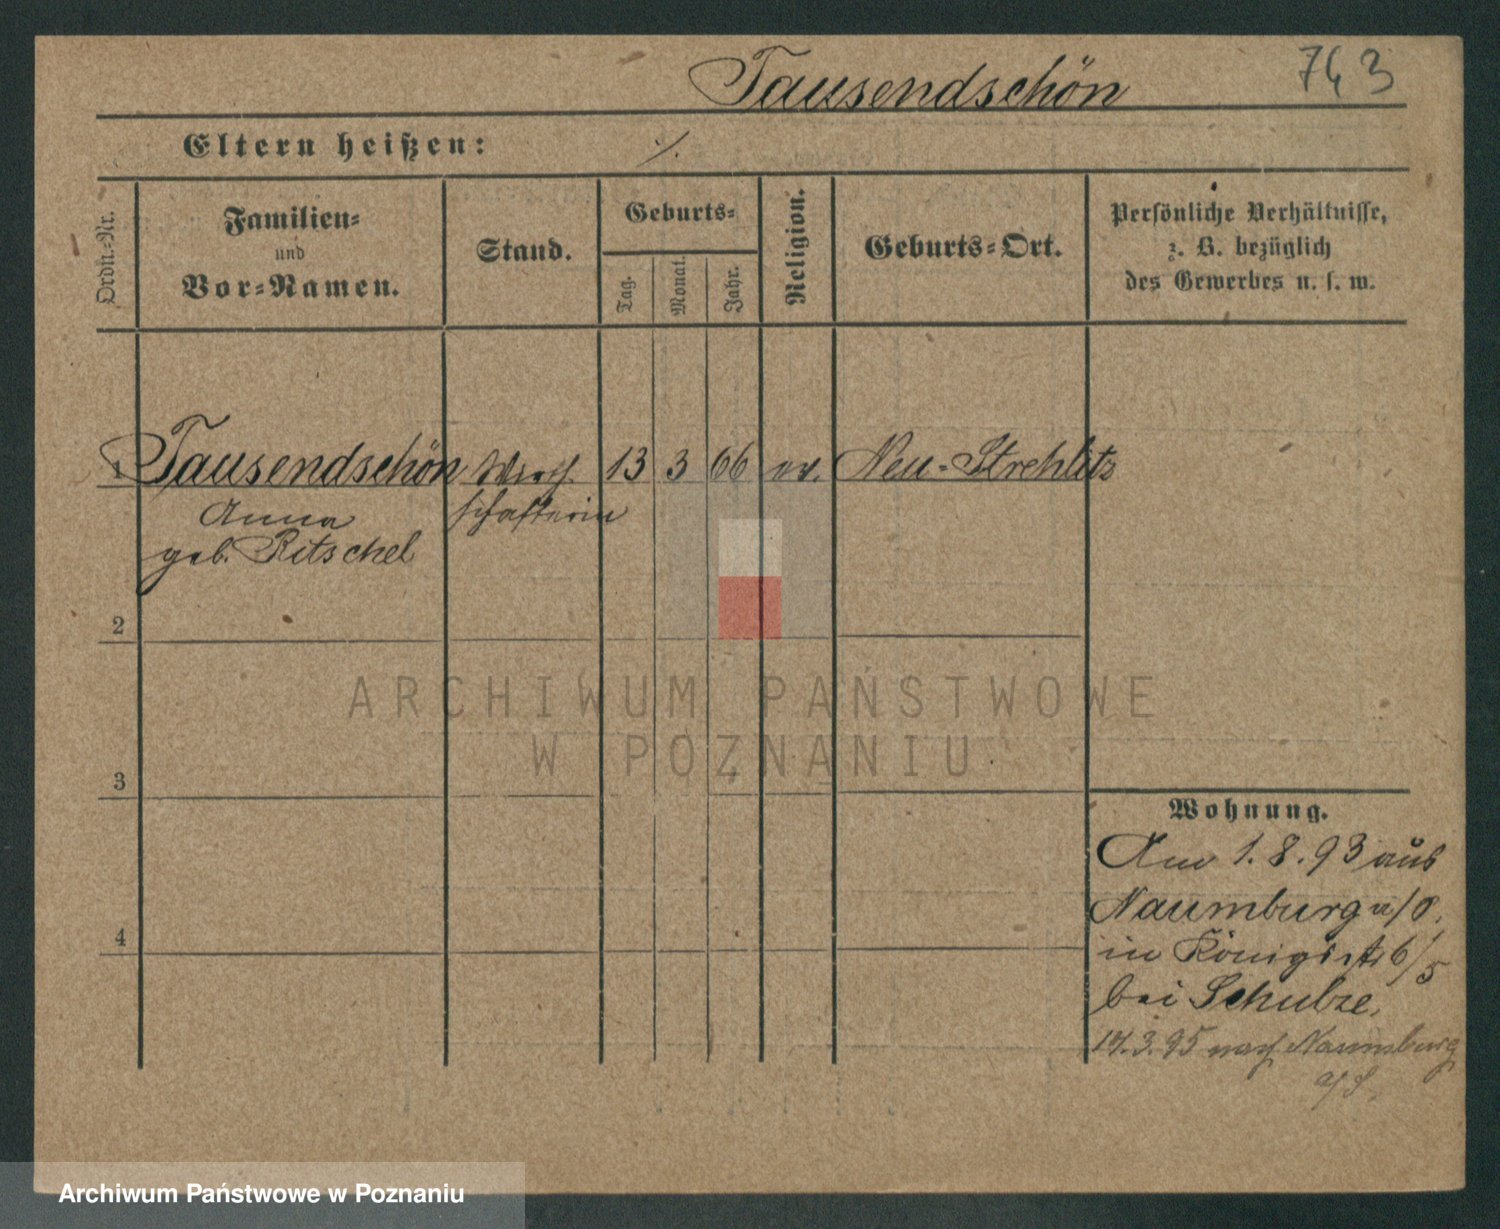 Tausendschön
743
Eltern heißen: ./.
Ordn.-Nr.
Familien-
und
Vor-Namen.
Stand.
Geburts-
Tag.
Monat.
Jahr.
Religion.
Geburts-Ort.
Persönliche Verhältnisse,
z. B. bezüglich
des Gewerbes u. s. w.
1 Tausendschön Wirth 13 3 66 ev. Neu-Strehlitz
Anna schafterin
geb. Ritschel
2
3
4
Wohnung.
Am 1.8.93 aus
Naumburg
in Königstr 6/5
bei Schulze.
17.3.95 nach Naumburg
a/S.
ARCHIWUM PAŃSTWOWE
W POZNANIU
Archiwum Państwowe w Poznaniu